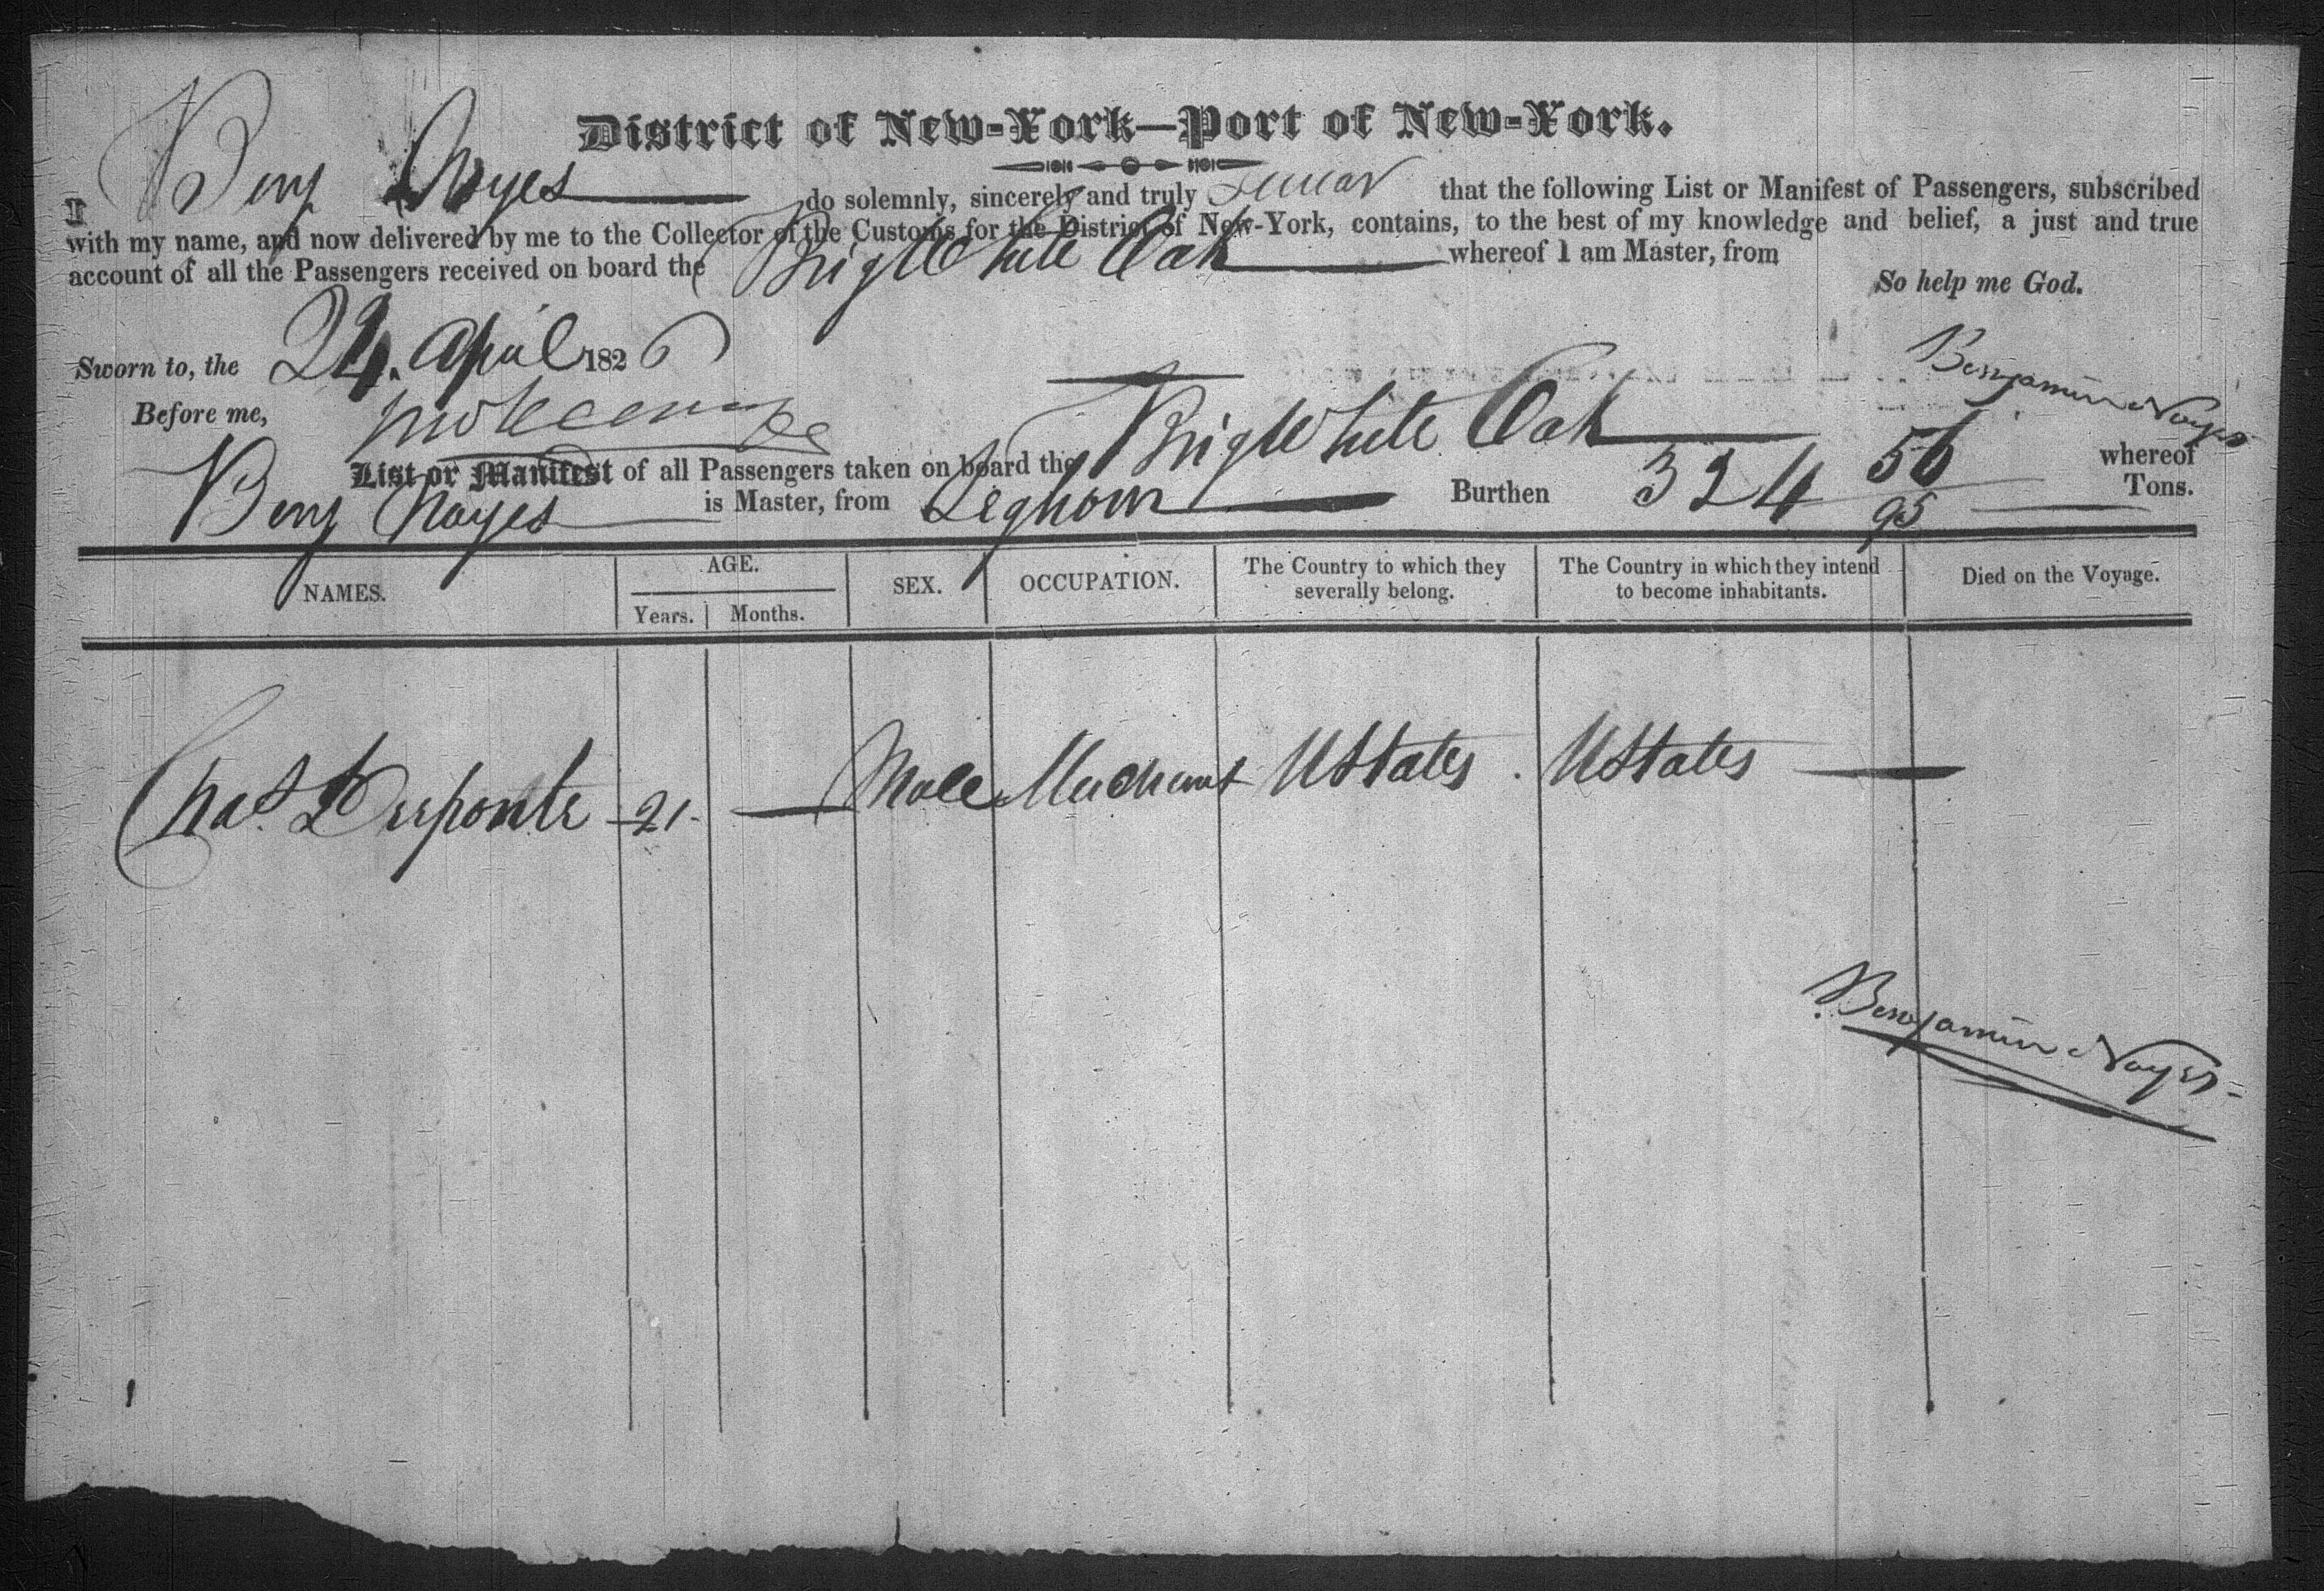 District of New-York—Port of New-York.
I Benj Noyes do solemnly, sincerely and truly swear that the following List or Manifest of Passengers, subscribed
with my name, and now delivered by me to the Collector of the Customs for the District of New-York, contains, to the best of my knowledge and belief, a just and true
account of all the Passengers received on board the Brig White Oak whereof I am Master, from
So help me God.
Sworn to, the 24. April 1826
Benjamin Noyes
Before me,
List or Manifest of all Passengers taken on board the Brig White Oak whereof
Benj Noyes is Master, from Leghorn Burthen 324 56/95 Tons.
NAMES. AGE. SEX. OCCUPATION. The Country to which they severally belong. The Country in which they intend to become inhabitants. Died on the Voyage.
Years. Months.
Chas. Desponte 21 — Male Merchant UStates. UStates —
Benjamin Noyes